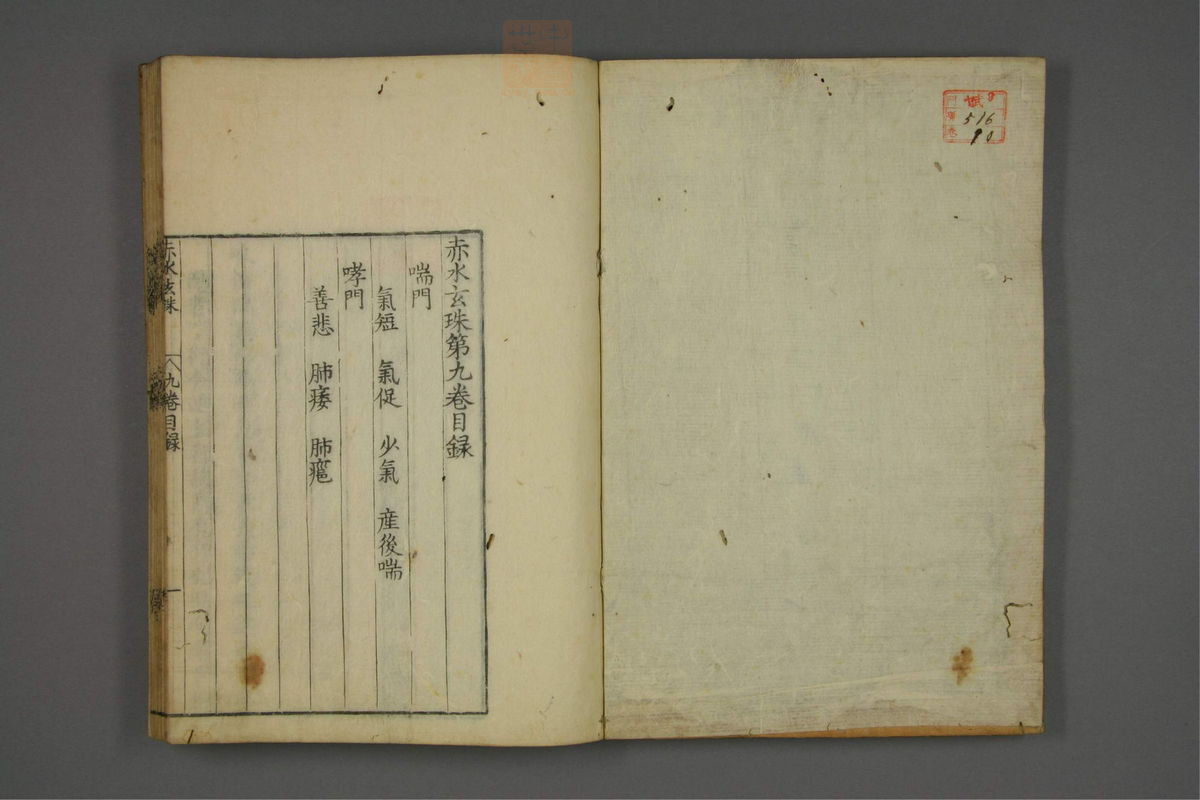 516
赤水玄珠第九卷目録
喘門
氣短 氣促 少氣 産後喘
哮門
善悲 肺痿 肺癰
赤水玄珠 九卷目録 一